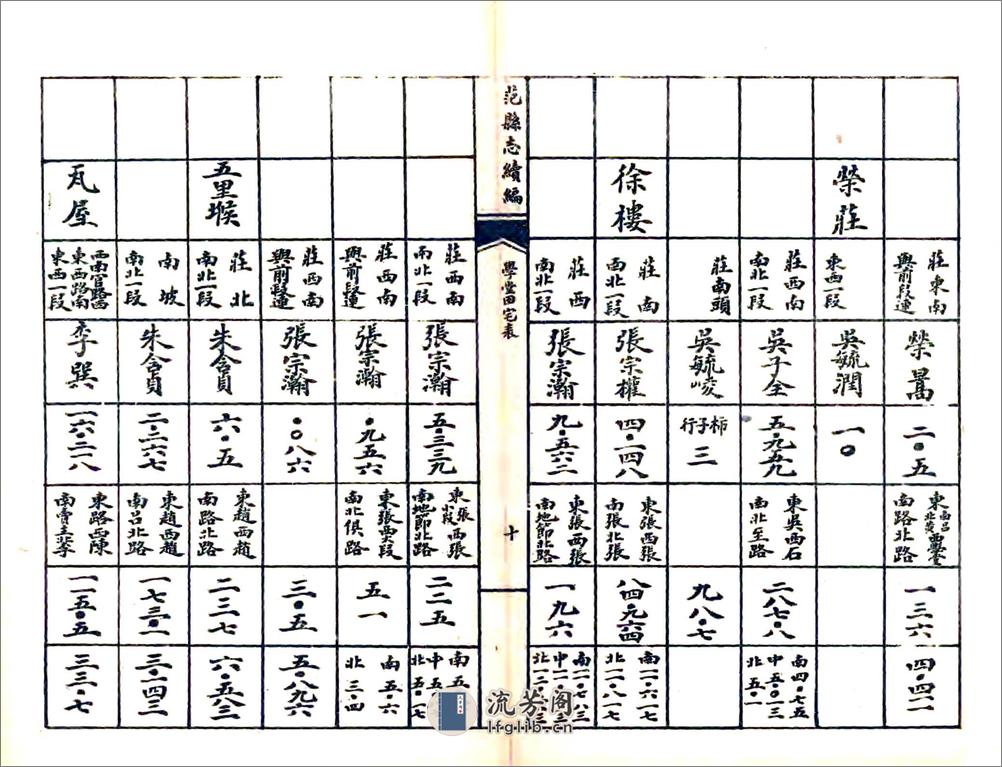 莊東南
與前段連
榮暠
二•五
東南呂北黃西學堂
南路北路
一三六
四•四二一
榮莊
東西一段
吳毓潤
一〇
莊西南
南北一段
吳子全
五•九五九
東吳西石
南北至路
二八七•八
南四•七五
中五•〇一三
北五•一
莊南頭
吳毓崚
柿子行
三
九八•七
徐樓
莊南
西北一段
張宗權
四•一四八
東張西張
南張北張
八四•九六四
莊西
南北一段
張宗瀚
九•五六二
東張西張
南地節北路
一九六
范縣志續編
學堂田宅表
十
莊西南
南北一段
張宗瀚
五•三三九
東張西張
小段
南地節北路
二二五
莊西南
與前段連
張宗瀚
•九五六
東張西大段
南北俱路
五一
南五•六
北三•四
莊西南
與前段連
張宗瀚
•〇八六
三•五
五•八九六
五里堠
莊北
南北一段
朱含貞
六•五
東趙西趙
南路北路
二三七
六•五八三
南坡
南北一段
朱含貞
二•二六七
東趙西趙
南呂北路
一七三•一
三•一四三
瓦屋
西南官路西
東西路南
東西一段
李巽
一六•二一八
東路西陳
南曹北李
一一五•五
三三•七
流芳阁
lfglib.cn